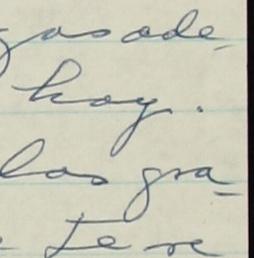 gasade
hoy.
las gra-
te re